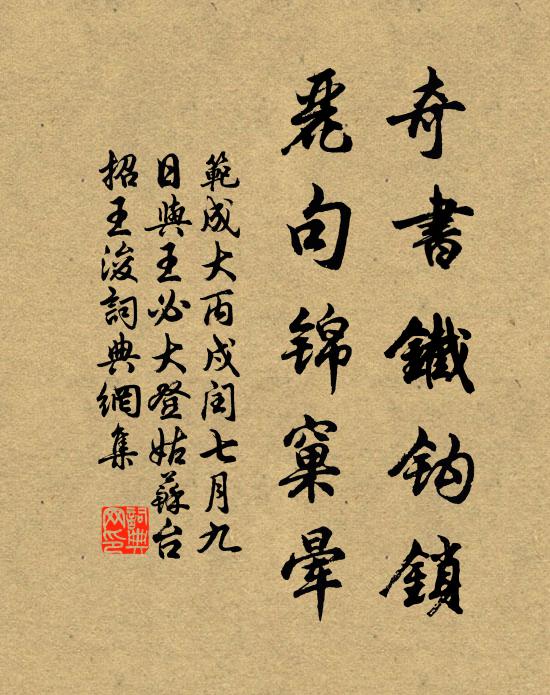 奇書鐵鈎鎖
麗句锦窠暈
範成大丙戌閏七月九
日與王必大登姑蘇台
招王浚詞典網集
詞典網印